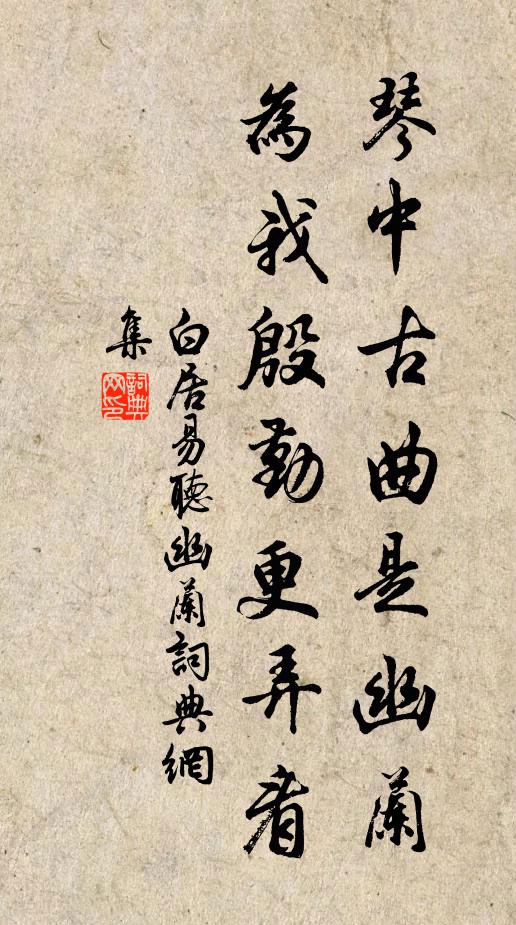 琴中古曲是幽蘭
為我殷勤更弄看
白居易聽幽蘭詞典網
集
詞典
网印